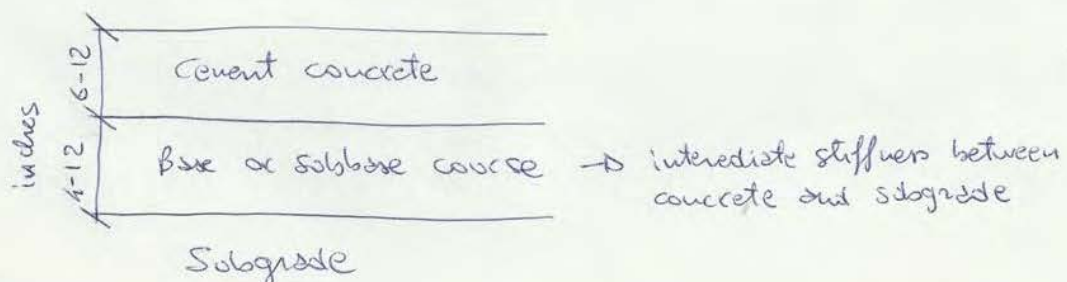 inches
6-12
Cement concrete
4-12
Base or subbase course → intermediate stiffness between
concrete and subgrade
Subgrade